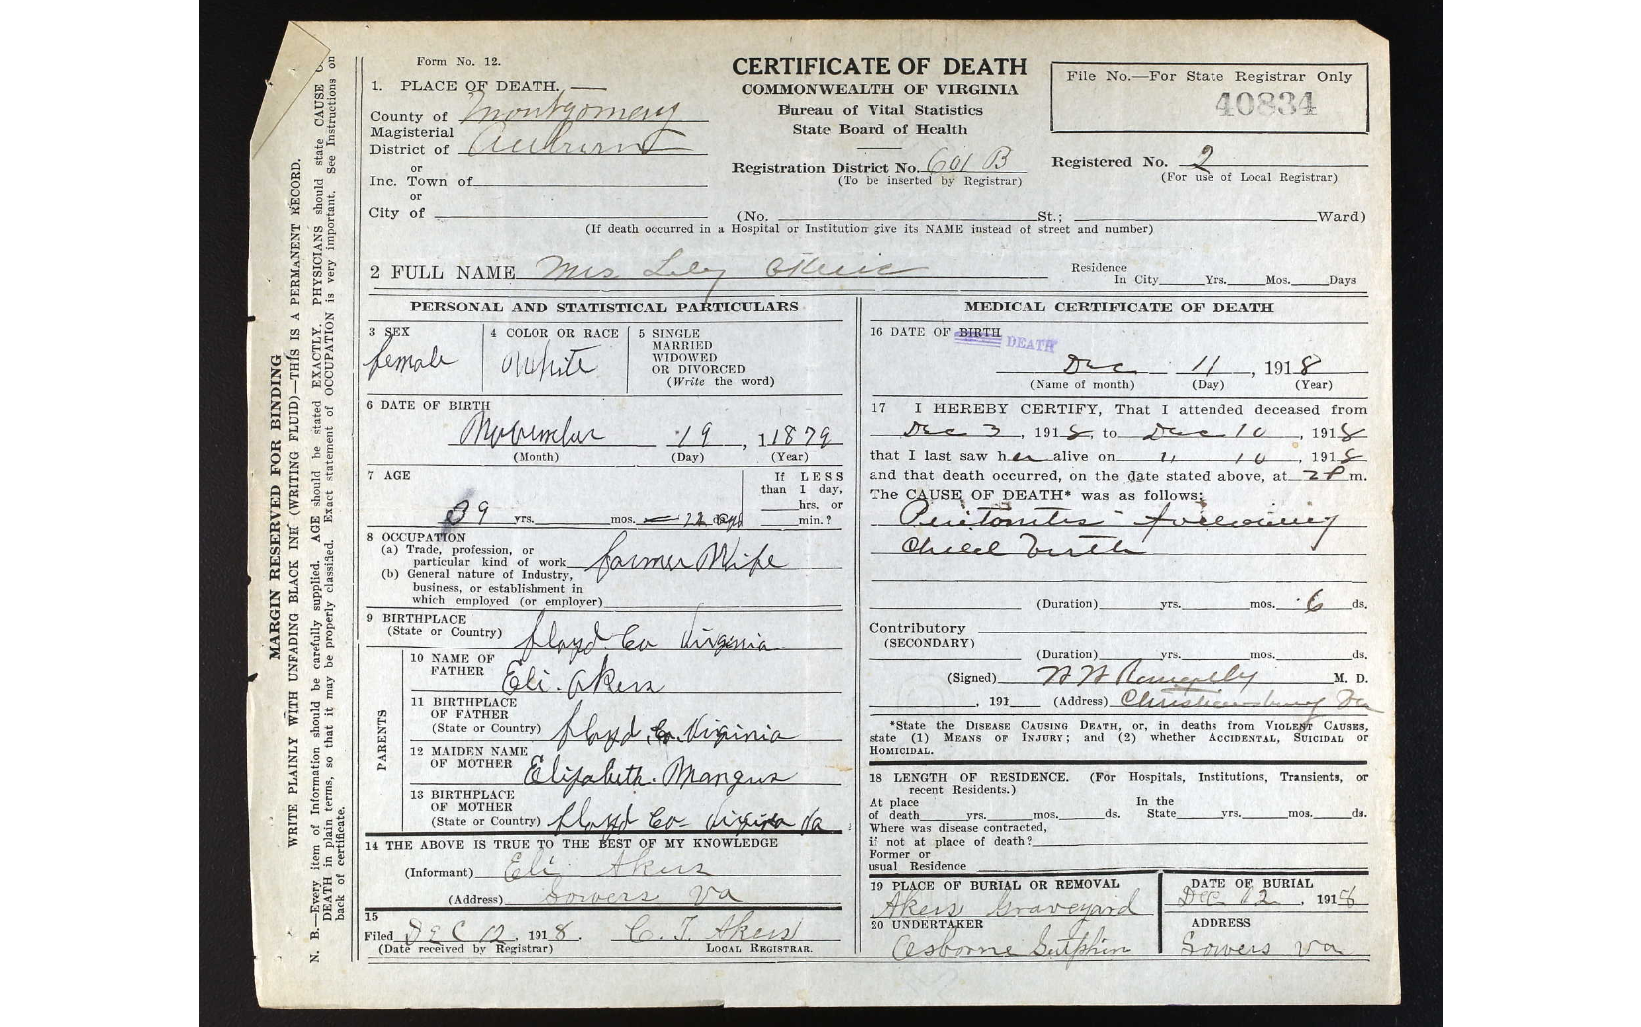 MARGIN RESERVED FOR BINDING
WRITE PLAINLY WITH UNFADING BLACK INK (WRITING FLUID)—THIS IS A PERMANENT RECORD.
N. B.—Every item of Information should be carefully supplied. AGE should be stated EXACTLY. PHYSICIANS should state CAUSE
DEATH in plain terms, so that it may be properly classified. Exact statement of OCCUPATION is very important. See Instructions on
back of certificate.
Form No. 12.
1. PLACE OF DEATH.
County of Montgomery
Magisterial
District of Auburn
or
Inc. Town of
or
City of
CERTIFICATE OF DEATH
COMMONWEALTH OF VIRGINIA
Bureau of Vital Statistics
State Board of Health
Registration District No. 601 B
(To be inserted by Registrar)
File No.—For State Registrar Only
40834
Registered No. 2
(For use of Local Registrar)
(No. St.; Ward)
(If death occurred in a Hospital or Institution give its NAME instead of street and number)
2 FULL NAME Mrs
Residence
In City Yrs. Mos. Days
PERSONAL AND STATISTICAL PARTICULARS
3 SEX
female
4 COLOR OR RACE
White
5 SINGLE
MARRIED
WIDOWED
OR DIVORCED
(Write the word)
6 DATE OF BIRTH
November 19, 1879
(Month) (Day) (Year)
7 AGE
39 yrs. mos. 22 days
If LESS
than 1 day,
hrs. or
min.?
8 OCCUPATION
(a) Trade, profession, or
particular kind of work farmer Wife
(b) General nature of Industry,
business, or establishment in
which employed (or employer)
9 BIRTHPLACE
(State or Country) floyd Co Virginia
PARENTS
10 NAME OF
FATHER Eli. Akers
11 BIRTHPLACE
OF FATHER
(State or Country) floyd Co. Virginia
12 MAIDEN NAME
OF MOTHER Elizabeth. Mangus
13 BIRTHPLACE
OF MOTHER
(State or Country) floyd Co Virginia Va
14 THE ABOVE IS TRUE TO THE BEST OF MY KNOWLEDGE
(Informant) Eli Akers
(Address) Sowers Va
15
Filed DEC 12, 1918. C. T. Akers
(Date received by Registrar) LOCAL REGISTRAR.
MEDICAL CERTIFICATE OF DEATH
16 DATE OF BIRTH DEATH
Dec 11, 1918
(Name of month) (Day) (Year)
17 I HEREBY CERTIFY, That I attended deceased from
Dec 3, 1918, to Dec 10, 1918
that I last saw her alive on 10, 1918
and that death occurred, on the date stated above, at 2 P m.
The CAUSE OF DEATH* was as follows:
Peritonitis following
Child birth
(Duration) yrs. mos. 6 ds.
Contributory
(SECONDARY)
(Duration) yrs. mos. ds.
(Signed) M. D.
, 191 (Address) Christiansburg Va
*State the DISEASE CAUSING DEATH, or, in deaths from VIOLENT CAUSES,
state (1) MEANS OF INJURY; and (2) whether ACCIDENTAL, SUICIDAL or
HOMICIDAL.
18 LENGTH OF RESIDENCE. (For Hospitals, Institutions, Transients, or
recent Residents.)
At place In the
of death yrs. mos. ds. State yrs. mos. ds.
Where was disease contracted,
if not at place of death?
Former or
usual Residence
19 PLACE OF BURIAL OR REMOVAL
Akers Graveyard
DATE OF BURIAL
Dec 12, 1918
20 UNDERTAKER
Osborne Sutphin
ADDRESS
Sowers Va